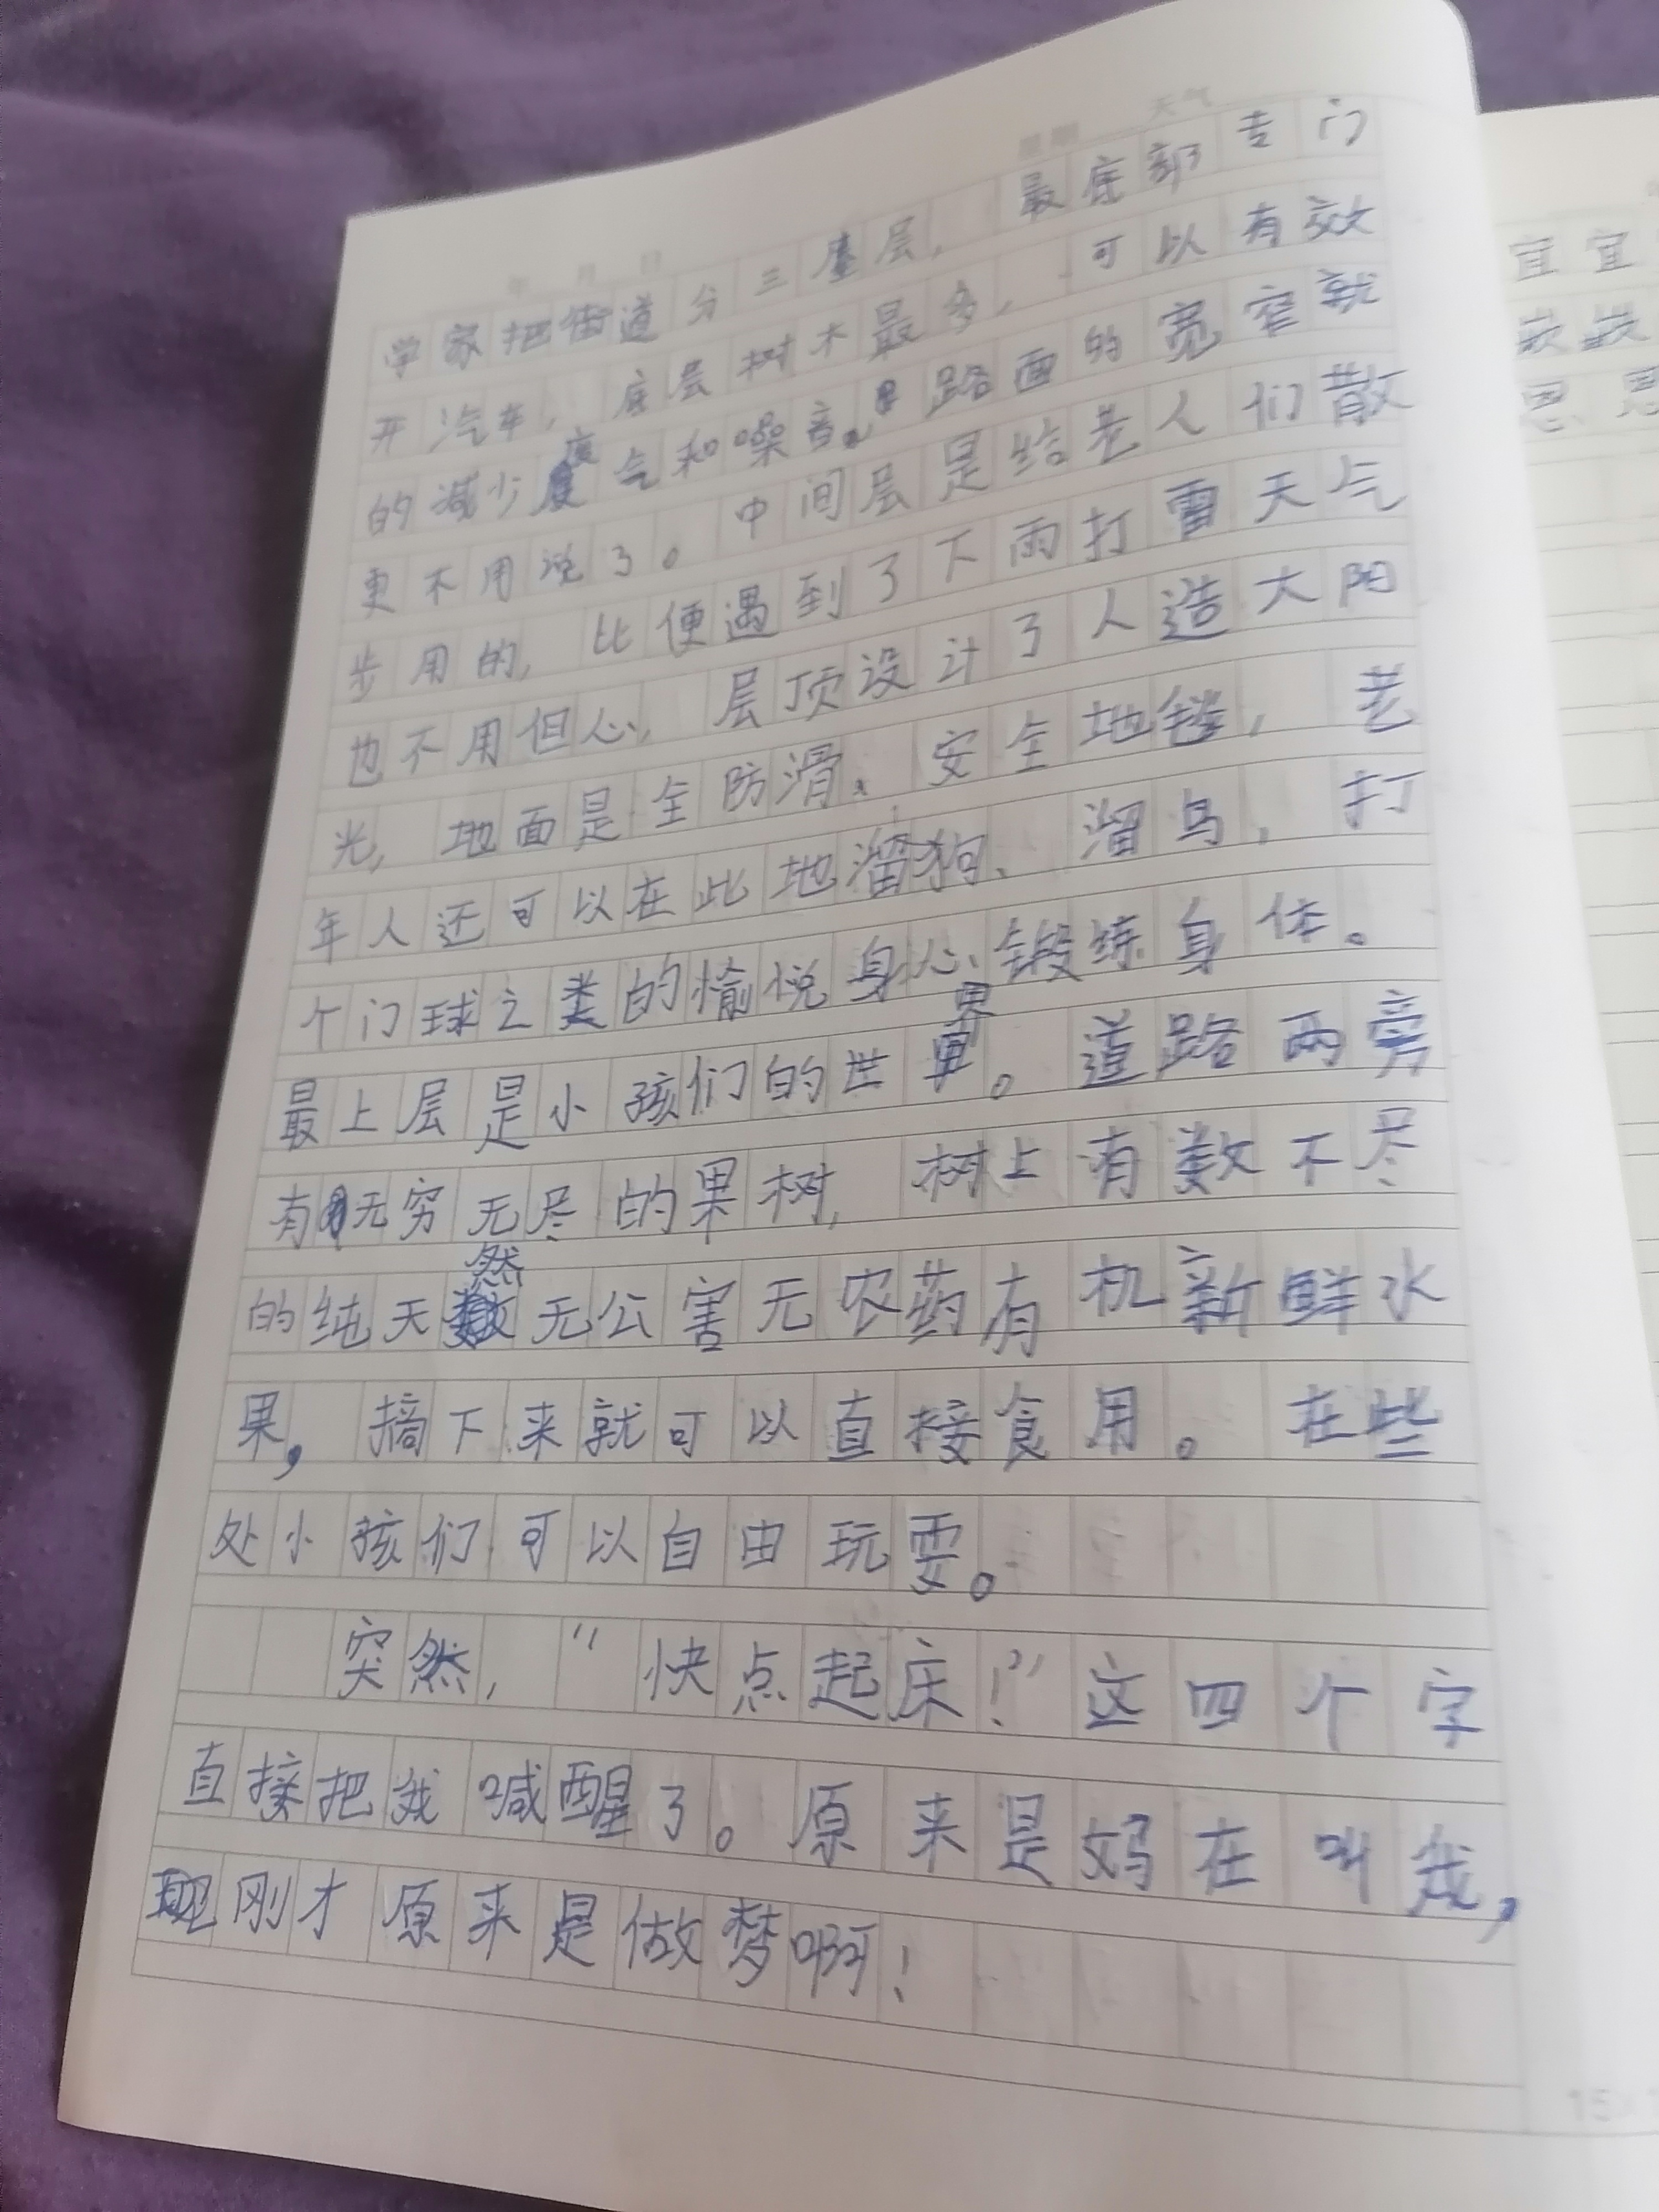 年 月 日 星期 天气
学家把街道分三层,最底部专门
开汽车,底层树木最多,可以有效
的减少废气和噪音。路面的宽窄就
更不用说了。中间层是给老人们散
步用的,比便遇到了下雨打雷天气
也不用但心,层顶设计了人造大阳
光,地面是全防滑、安全地毯,老
年人还可以在此地溜狗、溜鸟,打
个门球之类的愉悦身心锻练身体。
最上层是小孩们的世界。道路两旁
有无穷无尽的果树,树上有数不尽
的纯天然无公害无农药有机新鲜水
果,摘下来就可以直接食用。在些
处小孩们可以自由玩耍。
突然,“快点起床!”这四个字
直接把我喊醒了。原来是妈在叫我,
刚才原来是做梦啊!
宜宜
嵌嵌
思思